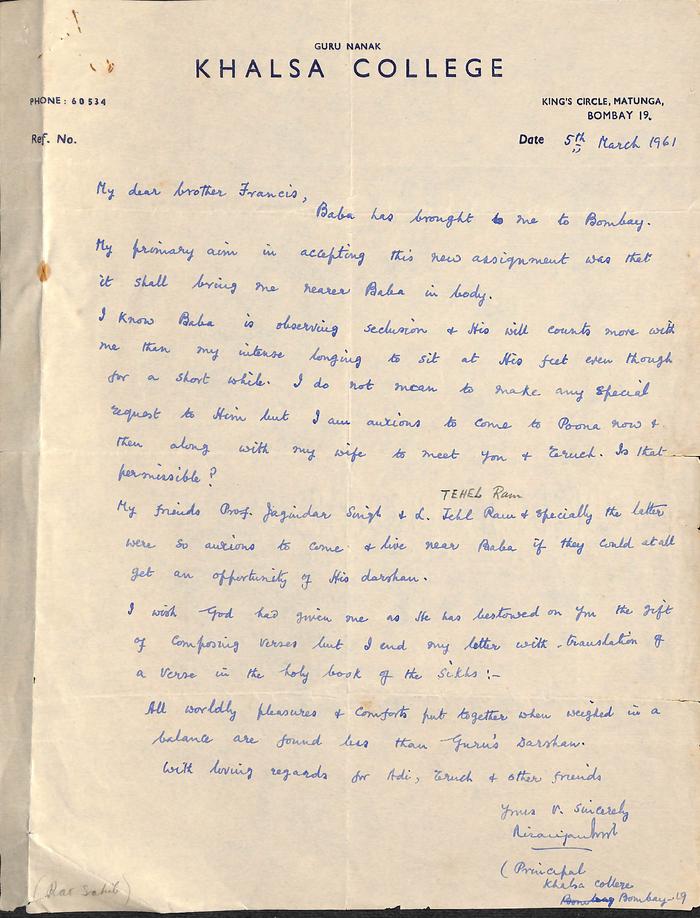 GURU NANAK
KHALSA COLLEGE
PHONE: 60534
KING'S CIRCLE, MATUNGA,
BOMBAY 19.
Ref. No.
Date 5th March 1961
My dear brother Francis,
Baba has brought to me to Bombay.
My primary aim in accepting this new assignment was that
it shall bring me nearer Baba in body.
I know Baba is observing seclusion & His will counts more with
me than my intense longing to sit at His feet even though
for a short while. I do not mean to make any special
request to Him but I am auxious to come to Poona now &
then along with my wife to meet you & Eruch. Is that
permissible?
TEHEL Ram
My friends Prof. Jagindar Singh & L. Tehl Ram & specially the latter
were so auxious to come & live near Baba if they could at all
get an opportunity of His darshan.
I wish God had given me as He has bestowed on you the gift
of composing verses but I end my letter with translation of
a verse in the holy book of the Sikhs :-
All worldly pleasures & comforts put together when weighed in a
balance are found less than Guru's Darshan.
With loving regards for Adi, Eruch & other friends
Yours v. Sincerely
(Principal
Khalsa College
Bombay Bombay-19
(Rai Sahib)